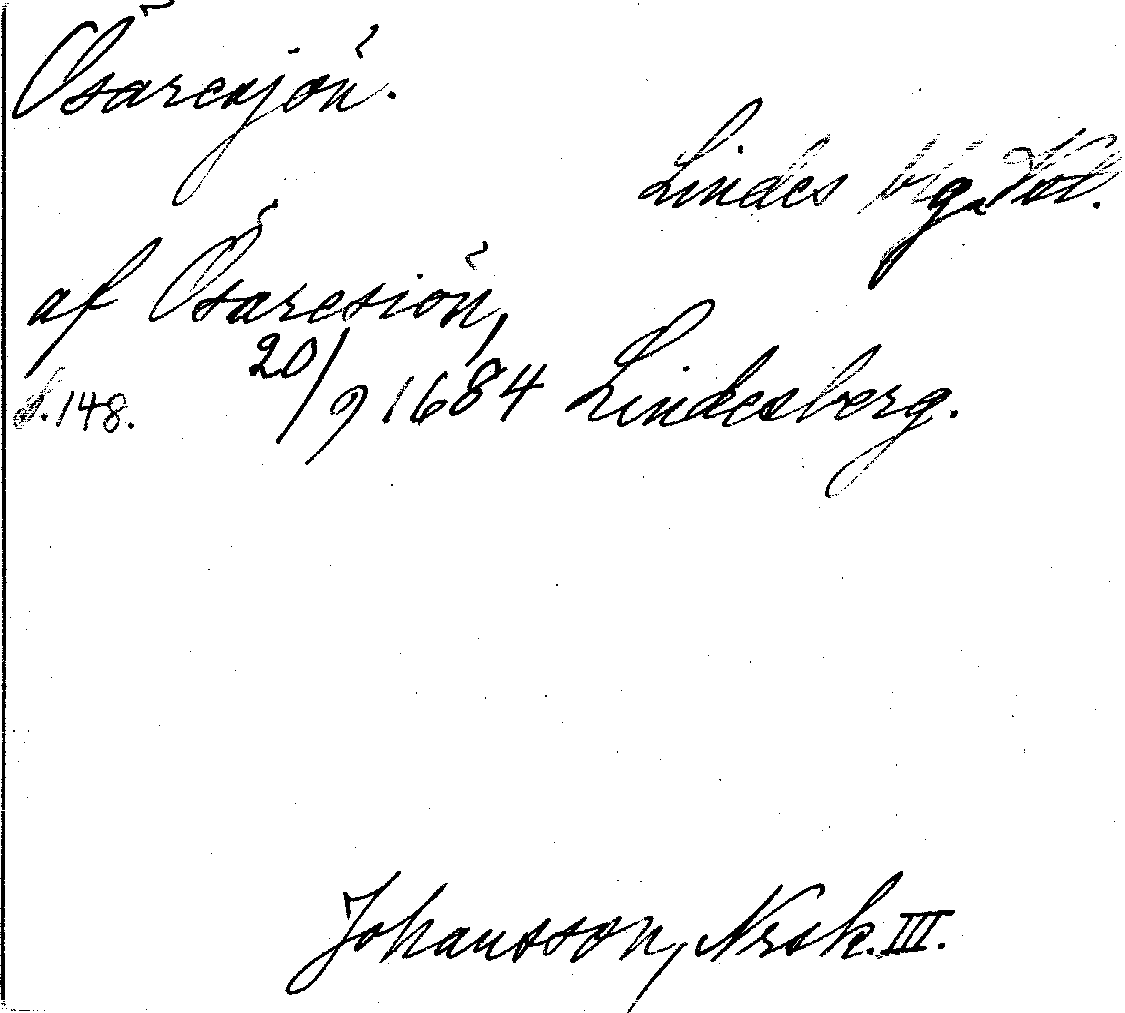 Ösaresjön.
Lindes blg.
af Ösaresiön,
S. 148. 20/9 1684 Lindesberg.
Johansson, Nrsk. III.